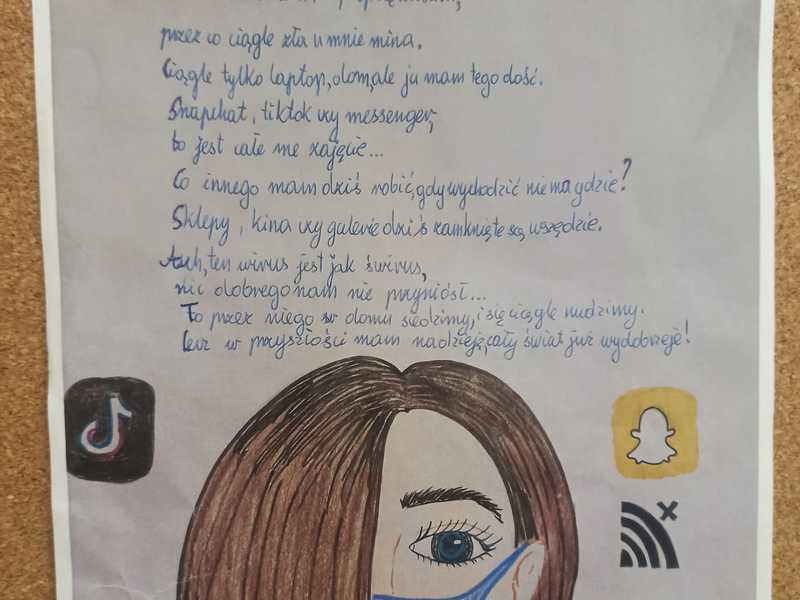 przez co ciągle zła u mnie mina.
Ciągle tylko laptop, dom, ale ja mam tego dość.
Snapchat, tiktok czy messenger,
to jest całe me zajęcie...
Co innego mam dziś robić, gdy wychodzić nie ma gdzie?
Sklepy, kina czy galerie dziś zamknięte są wszędzie.
Ach, ten wirus jest jak świrus,
nic dobrego nam nie przyniósł...
To przez niego w domu siedzimy, i się ciągle nudzimy.
Lecz w przyszłości mam nadzieję, cały świat już wydobrzeje!